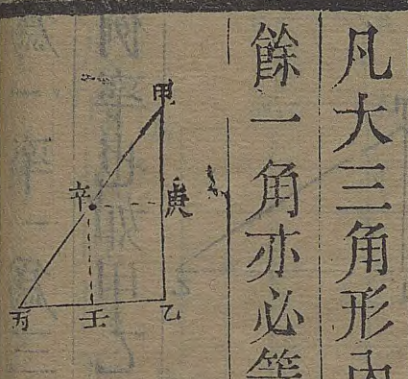 凡大三角形內
餘一角亦必等
甲
庚
辛
乙
壬
丙